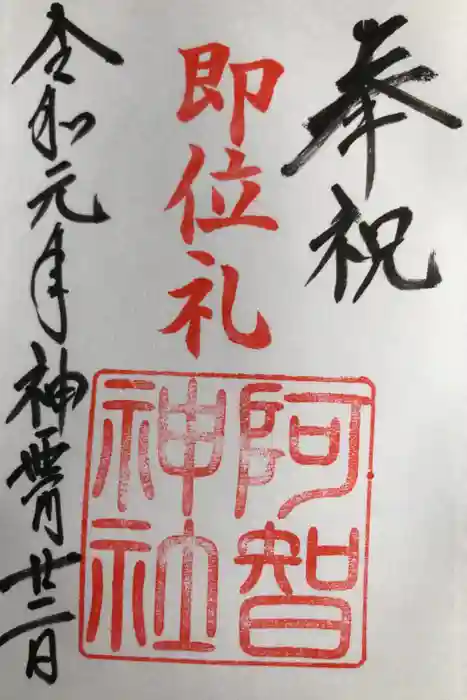 奉祝
即位礼
阿智
神社
令和元年神無月廿二日